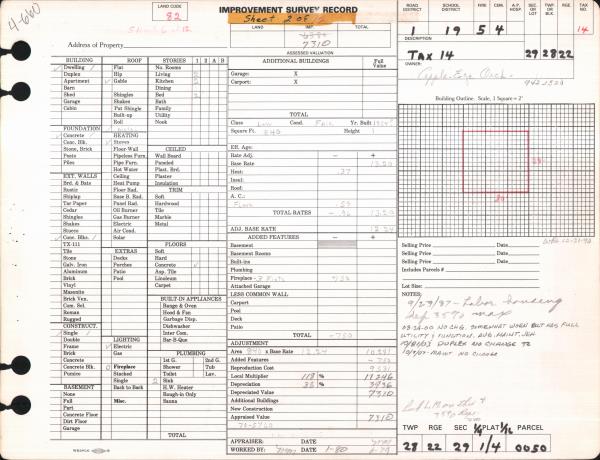 4-660
LAND CODE
82
IMPROVEMENT SURVEY RECORD
Sheet 2 of 12
LAND IMP TOTAL
7310
ASSESSED VALUATION
Address of Property
ROAD DISTRICT SCHOOL DISTRICT FIRE CEM. A.P. HOSP. SEC. OR LOT TWP OR BLK. RGE TAX NO.
1 19 5 4 14
DESCRIPTION
TAX 14 29.28 22
OWNER:
BUILDING
Dwelling
Duplex
Apartment
Barn
Shed
Garage
Cabin
FOUNDATION
Concrete
Conc. Blk.
Stone, Brick
Posts
Piles
EXT. WALLS
Brd. & Bats
Rustic
Shiplap
Tar Paper
Cedar
Shingles
Shakes
Stucco
Conc. Blks.
TX-111
Tile
Stone
Galv. Iron
Aluminum
Brick
Vinyl
Masonite
Brick Ven.
Com. Sel.
Roman
Rugged
CONSTRUCT.
Single
Double
Frame
Brick
Concrete
Concrete Blk.
Pumice
BASEMENT
None
Full
Part
Concrete Floor
Dirt Floor
Garage
ROOF
Flat
Hip
Gable
Shingles
Shakes
Pat Shingle
Built-up
Roll
HEATING
Stoves
Floor-Wall
Pipeless Furn.
Pipe Furn.
Hot Water
Ceiling
Heat Pump
Floor Rad.
Base B. Rad.
Panel Rad.
Oil Burner
Gas Burner
Electric
Air Cond.
Solar
Decks
Porches
LIGHTING
Electric
Gas
Fireplace
Stacked
Single
Back to Back
Misc.
STORIES 1 2 A B
No. Rooms
Living
Kitchen
Dining
Bed
Bath
Family
Utility
Nook
CEILED
Wall Board
Paneled
Plast. Brd.
Plaster
Insulation
TRIM
Soft
Hardwood
Tile
Marble
Metal
FLOORS
Soft
Hard
Concrete
Asp. Tile
Linoleum
Carpet
BUILT-IN APPLIANCES
Range & Oven
Hood & Fan
Garbage Disp.
Dishwasher
Inter Com.
Bar-B-Que
PLUMBING
1st G. 2nd G.
Shower Tub
Toilet Lav.
Sink
H.W. Heater
Rough-in Only
Sauna
TOTAL
ADDITIONAL BUILDINGS Full Value
Garage: X
Carport: X
TOTAL
Class Low Cond. Fair Yr. Built
Square Ft. 840 Height 1
Eff. Age:
Rate Adj. - +
Base Rate 13.20
Heat: .37
Insul:
Roof:
A. C.:
Floor .59
TOTAL RATES - .96 13.20
ADJ. BASE RATE 12.24
ADDED FEATURES - +
Basement
Basement Rooms
Built-ins
Plumbing
Fireplace
Attached Garage
LESS COMMON WALL
Carport
Pool
Deck
Patio
TOTAL -750
ADJUSTMENT
Area 840 x Base Rate 12.24 10,281
Added Features -750
Reproduction Cost 9531
Local Multiplier 118 % 11246
Depreciation 35 % 3936
Depreciated Value 7310
Additional Buildings
New Construction
Appraised Value 7310
APPRAISER: DATE
WORKED BY: DATE 1-80
Building Outline. Scale, 1 Square = 2'
Selling Price Date
Selling Price Date
Selling Price Date
Includes Parcels #
Lot Size:
NOTES:
9/23/87 - Labor housing
def 35% max
03-26-00 NO CHG. SOMEWHAT WORN BUT HAS FULL
UTILITY & FUNCTION. AVG. MAINT. JEH
DUPLEX NO CHANGE TZ
NO CHANGE
TWP RGE SEC 1/4 PLAT 1/16 PARCEL
28 22 29 1/4 0050